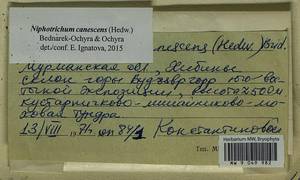 Niphotrichum canescens (Hedw.)
Bednarek-Ochyra & Ochyra
det./conf. E. Ignatova, 2015
nescens (Hedw.) Brid.
Мурманская обл. Хибины
склон горы Вудъяврчорр юго-
экспозиции, 500м
кустарничково-лишайниково-мо-
ховая тундра
13/VIII Константинова
Herbarium MW, Bryophyta
MW 9 049 982